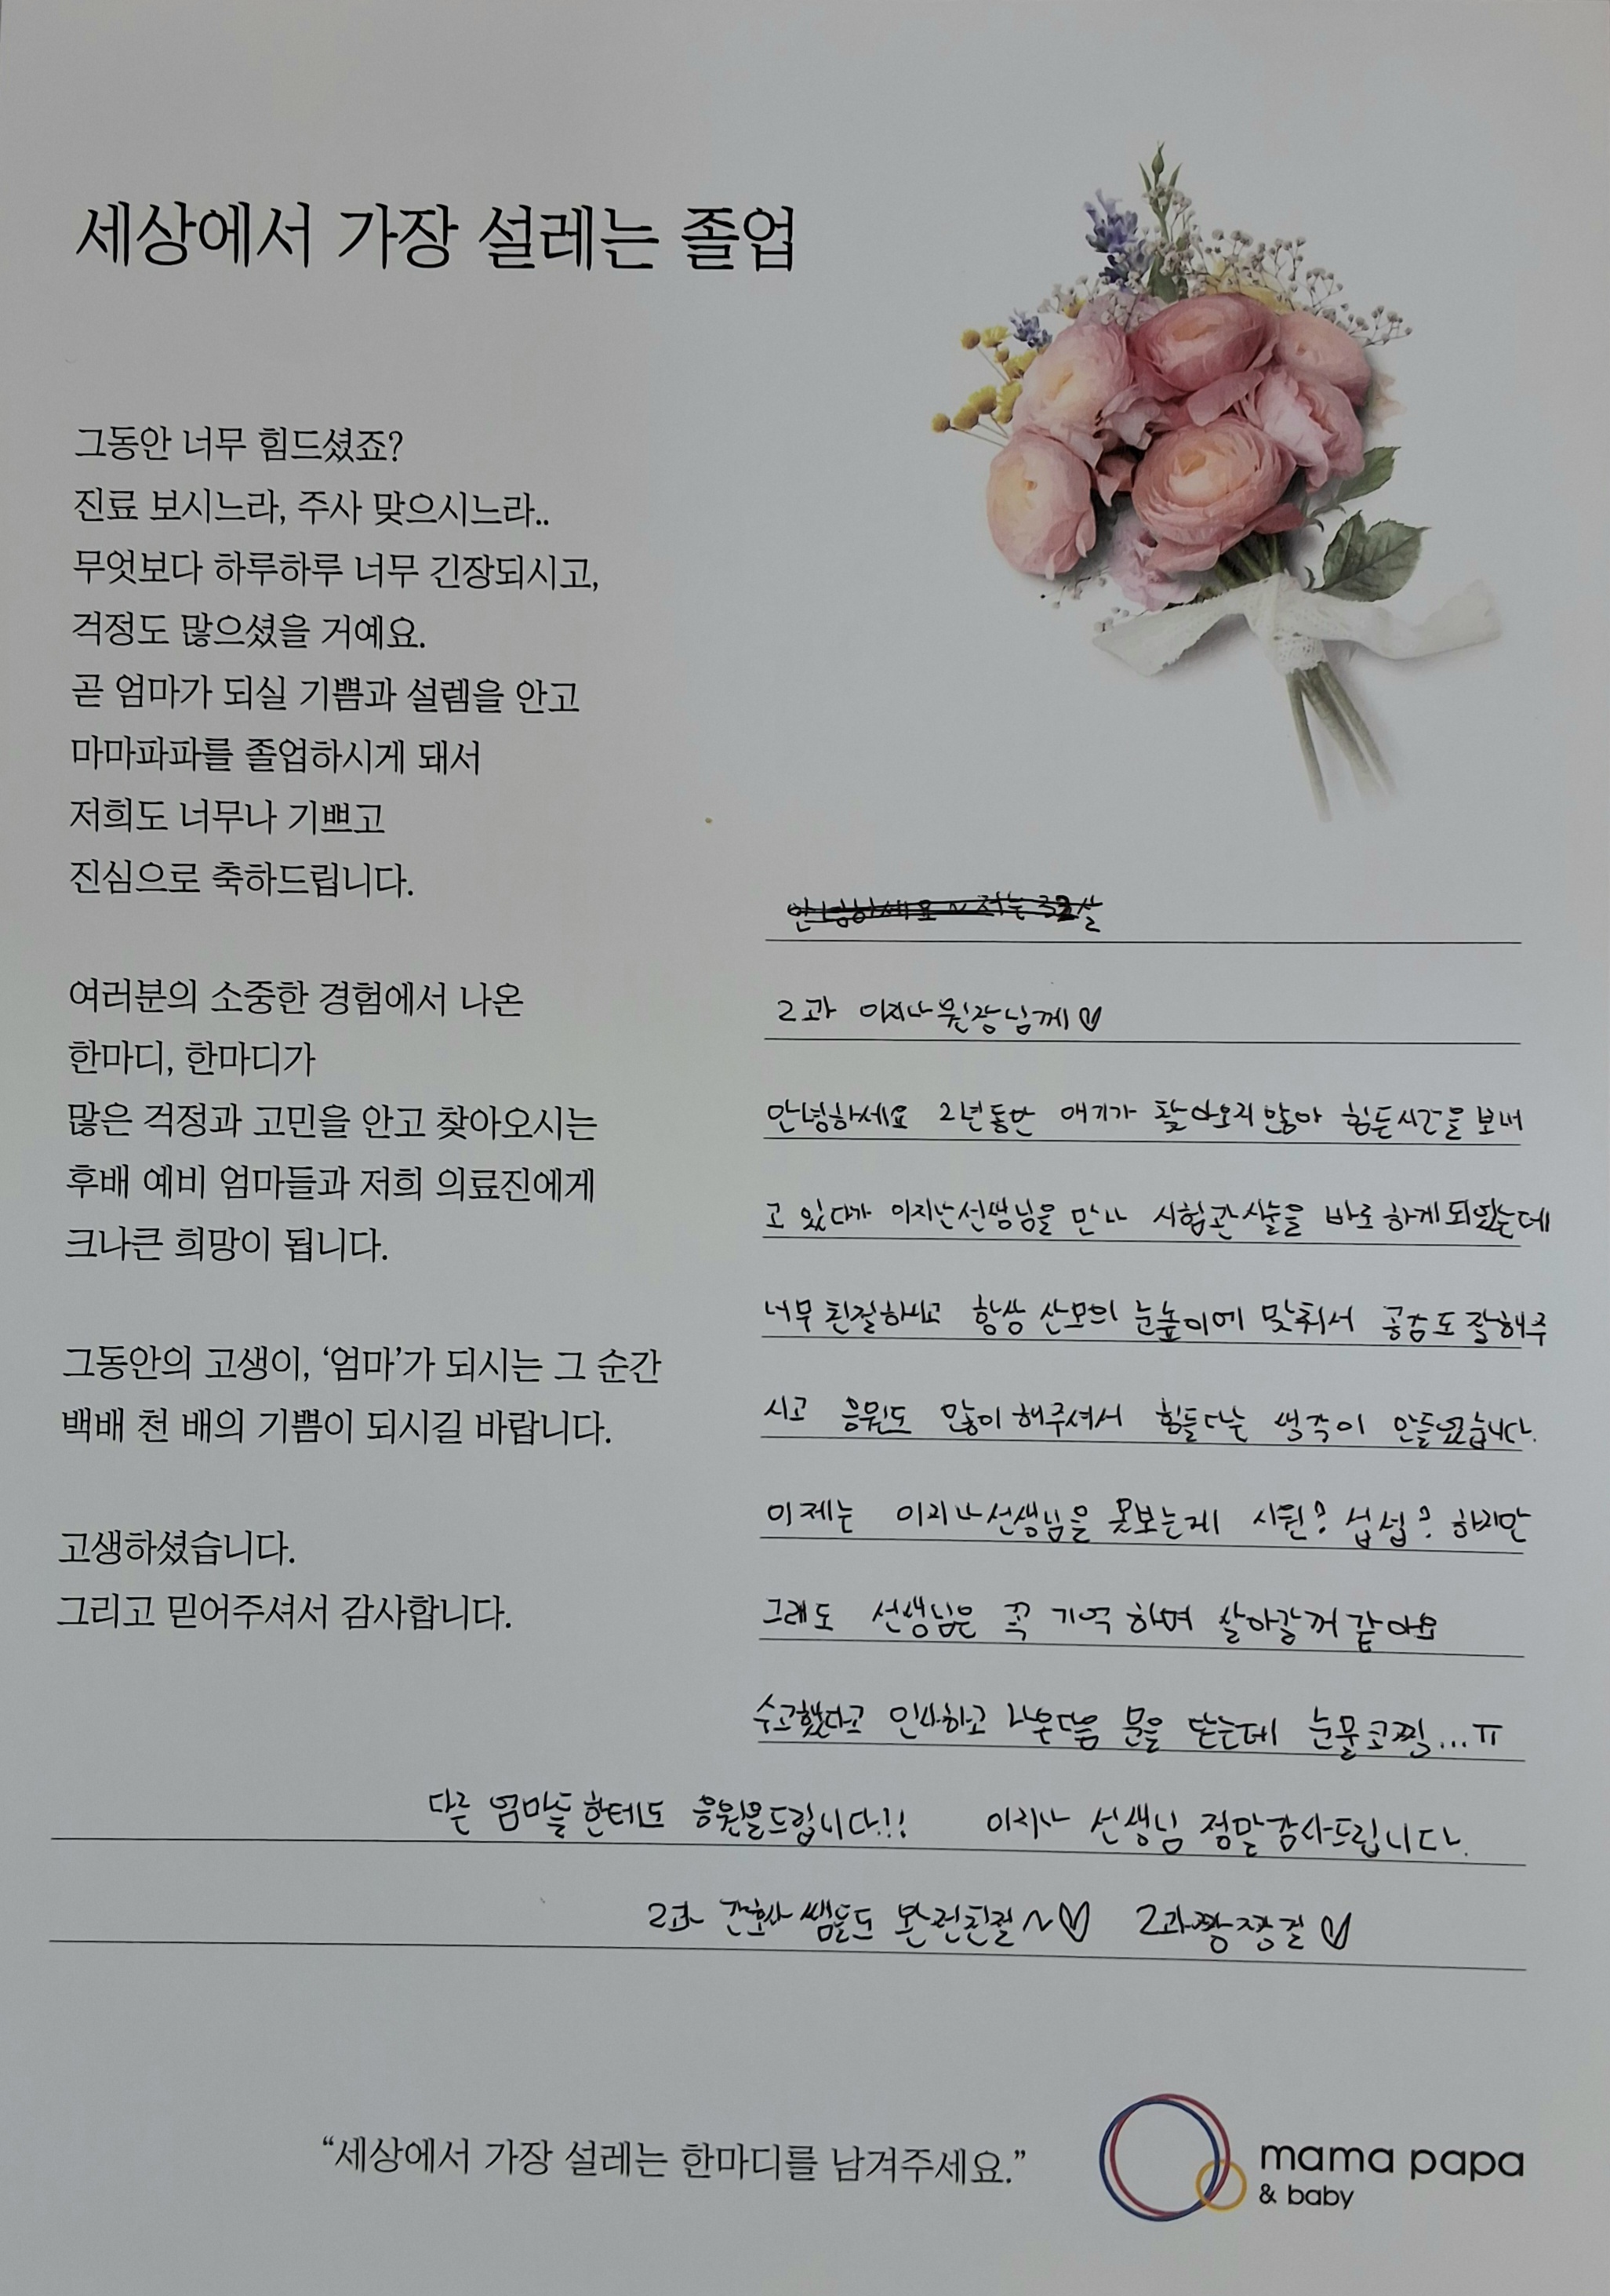 세상에서 가장 설레는 졸업
그동안 너무 힘드셨죠?
진료 보시느라, 주사 맞으시느라..
무엇보다 하루하루 너무 긴장되시고,
걱정도 많으셨을 거예요.
곧 엄마가 되실 기쁨과 설렘을 안고
마마파파를 졸업하시게 돼서
저희도 너무나 기쁘고
진심으로 축하드립니다.
여러분의 소중한 경험에서 나온
한마디, 한마디가
많은 걱정과 고민을 안고 찾아오시는
후배 예비 엄마들과 저희 의료진에게
크나큰 희망이 됩니다.
그동안의 고생이, ‘엄마’가 되시는 그 순간
백배 천 배의 기쁨이 되시길 바랍니다.
고생하셨습니다.
그리고 믿어주셔서 감사합니다.
안녕하세요~ 저는 32살
2과 이지나원장님께♡
안녕하세요 2년동안 애기가 찾아오지않아 힘든시간을 보내
고 있다가 이지나선생님을 만나 시험관시술을 바로하게되었는데
너무친절하시고 항상 산모의 눈높이에 맞춰서 공감도잘해주
시고 응원도 많이해주셔서 힘들다는 생각이 안들었습니다.
이제는 이지나선생님을 못보는게 시원? 섭섭? 하지만
그래도 선생님은 꼭 기억하며 살아갈꺼 같아요
수고했다고 인사하고 나온다음 문을 닫는데 눈물코찔...ㅠ
다른 엄마들한테도 응원을드립니다!! 이지나 선생님 정말감사드립니다.
2과 간호사 쌤들도 완전친절~♡ 2과짱짱걸♡
“세상에서 가장 설레는 한마디를 남겨주세요.”
mama papa
& baby